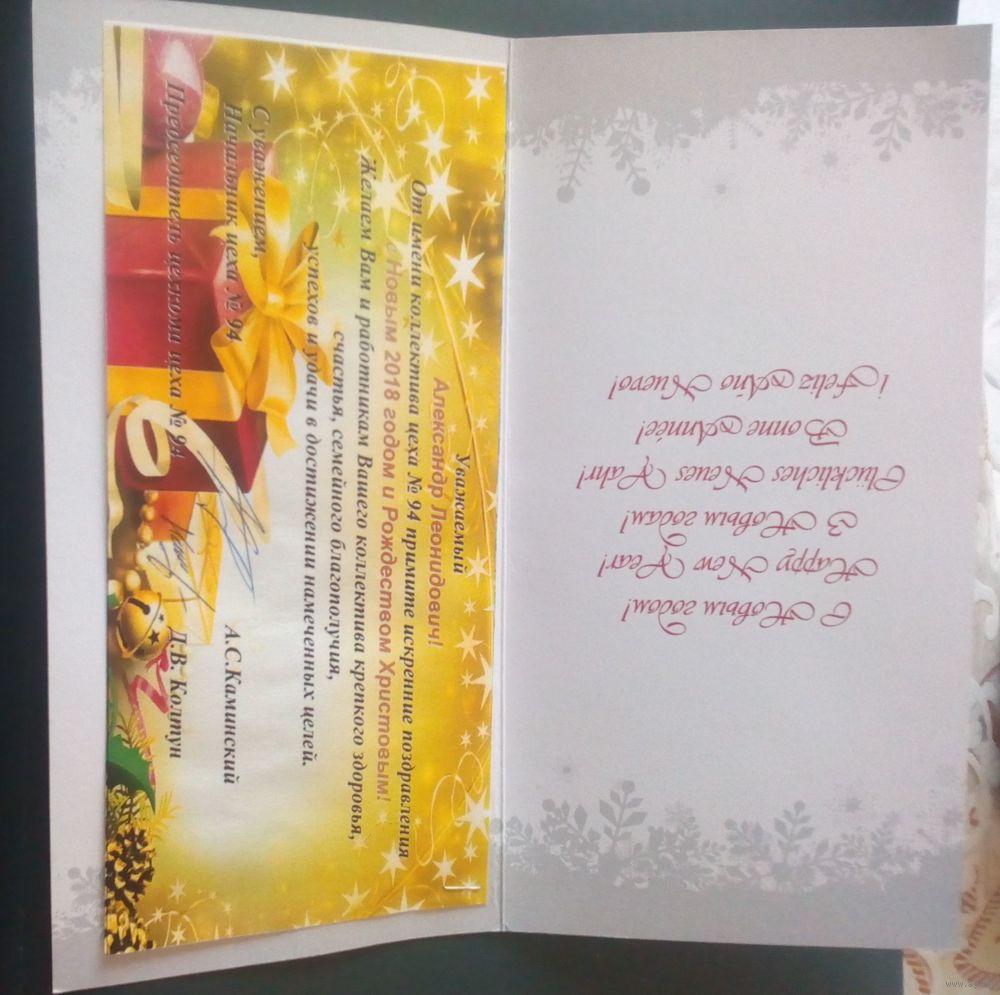 Уважаемый
Александр Леонидович!
От имени коллектива цеха № 94 примите искренние поздравления
с Новым 2018 годом и Рождеством Христовым!
Желаем Вам и работникам Вашего коллектива крепкого здоровья,
счастья, семейного благополучия,
успехов и удачи в достижении намеченных целей.
С уважением,
Начальник цеха № 94 А.С.Каминский
Председатель цехкома цеха № 94 Д.В. Колтун
С Новым годом!
Happy New Year!
З Новым годам!
Glückliches Neues Jahr!
Bonne Année!
¡ Feliz Año Nuevo!